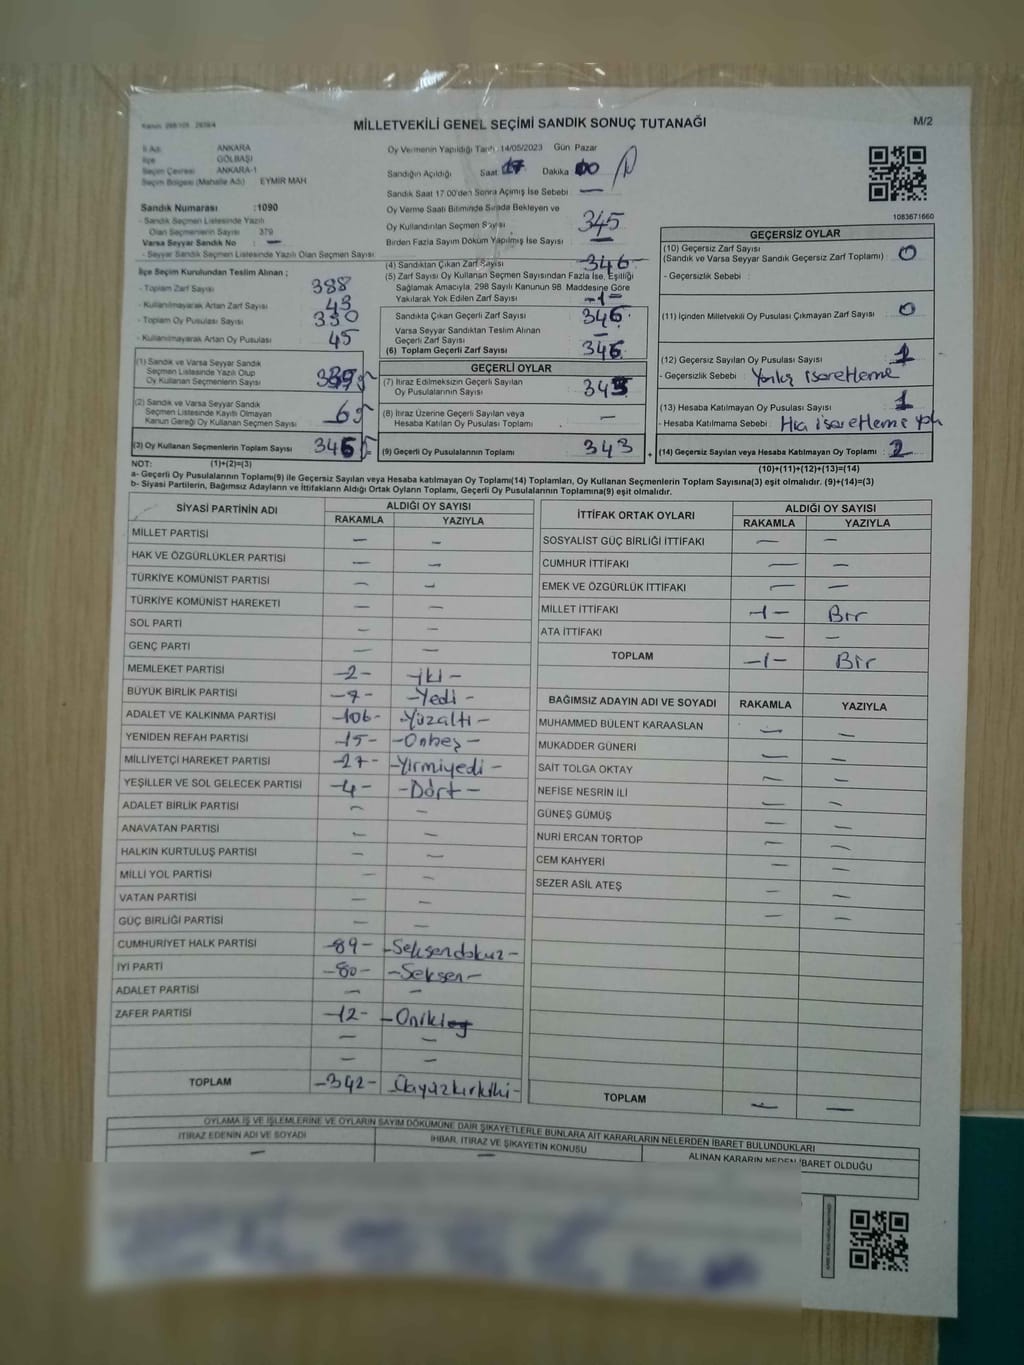 MİLLETVEKİLİ GENEL SEÇİMİ SANDIK SONUÇ TUTANAĞI
M/2
İl Adı ANKARA
İlçe GÖLBAŞI
Seçim Çevresi ANKARA-1
Seçim Bölgesi (Mahalle Adı) EYMİR MAH
Sandık Numarası :1090
- Sandık Seçmen Listesinde Yazılı
Olan Seçmenlerin Sayısı 379
Varsa Seyyar Sandık No —
- Seyyar Sandık Seçmen Listesinde Yazılı Olan Seçmen Sayısı
Oy Vermenin Yapıldığı Tarih :14/05/2023 Gün Pazar
Sandığın Açıldığı Saat 17 Dakika 00
Sandık Saat 17.00'den Sonra Açılmış İse Sebebi —
Oy Verme Saati Bitiminde Sırada Bekleyen ve
Oy Kullandırılan Seçmen Sayısı 345
Birden Fazla Sayım Döküm Yapılmış İse Sayısı —
1083671660
İlçe Seçim Kurulundan Teslim Alınan ;
- Toplam Zarf Sayısı 388
- Kullanılmayarak Artan Zarf Sayısı 43
- Toplam Oy Pusulası Sayısı
- Kullanılmayarak Artan Oy Pusulası 45
(1) Sandık ve Varsa Seyyar Sandık
Seçmen Listesinde Yazılı Olup
Oy Kullanan Seçmenlerin Sayısı
(2) Sandık ve Varsa Seyyar Sandık
Seçmen Listesinde Kayıtlı Olmayan
Kanun Gereği Oy Kullanan Seçmen Sayısı 6
(3) Oy Kullanan Seçmenlerin Toplam Sayısı
(1)+(2)=(3)
(4) Sandıktan Çıkan Zarf Sayısı -346-
(5) Zarf Sayısı Oy Kullanan Seçmen Sayısından Fazla İse, Eşitliği
Sağlamak Amacıyla, 298 Sayılı Kanunun 98. Maddesine Göre
Yakılarak Yok Edilen Zarf Sayısı -1-
Sandıkta Çıkan Geçerli Zarf Sayısı 346
Varsa Seyyar Sandıktan Teslim Alınan
Geçerli Zarf Sayısı —
(6) Toplam Geçerli Zarf Sayısı 346
GEÇERLİ OYLAR
(7) İtiraz Edilmeksizin Geçerli Sayılan
Oy Pusulalarının Sayısı 343
(8) İtiraz Üzerine Geçerli Sayılan veya
Hesaba Katılan Oy Pusulası Toplamı —
(9) Geçerli Oy Pusulalarının Toplamı 343
GEÇERSİZ OYLAR
(10) Geçersiz Zarf Sayısı
(Sandık ve Varsa Seyyar Sandık Geçersiz Zarf Toplamı) 0
- Geçersizlik Sebebi :
(11) İçinden Milletvekili Oy Pusulası Çıkmayan Zarf Sayısı 0
(12) Geçersiz Sayılan Oy Pusulası Sayısı 1
- Geçersizlik Sebebi : Yanlış işaretleme
(13) Hesaba Katılmayan Oy Pusulası Sayısı 1
- Hesaba Katılmama Sebebi : Hiç işaretleme yok
(14) Geçersiz Sayılan veya Hesaba Katılmayan Oy Toplamı : 2
(10)+(11)+(12)+(13)=(14)
NOT:
a- Geçerli Oy Pusulalarının Toplamı(9) ile Geçersiz Sayılan veya Hesaba katılmayan Oy Toplamı(14) Toplamları, Oy Kullanan Seçmenlerin Toplam Sayısına(3) eşit olmalıdır. (9)+(14)=(3)
b- Siyasi Partilerin, Bağımsız Adayların ve İttifakların Aldığı Ortak Oyların Toplamı, Geçerli Oy Pusulalarının Toplamına(9) eşit olmalıdır.
SİYASİ PARTİNİN ADI ALDIĞI OY SAYISI
RAKAMLA YAZIYLA
MİLLET PARTİSİ — —
HAK VE ÖZGÜRLÜKLER PARTİSİ — —
TÜRKİYE KOMÜNİST PARTİSİ — —
TÜRKİYE KOMÜNİST HAREKETİ — —
SOL PARTİ — —
GENÇ PARTİ — —
MEMLEKET PARTİSİ -2- -İki-
BÜYÜK BİRLİK PARTİSİ -7- -Yedi-
ADALET VE KALKINMA PARTİSİ -106- -Yüzaltı-
YENİDEN REFAH PARTİSİ -15- -Onbeş-
MİLLİYETÇİ HAREKET PARTİSİ -27- -Yirmiyedi-
YEŞİLLER VE SOL GELECEK PARTİSİ -4- -Dört-
ADALET BİRLİK PARTİSİ — —
ANAVATAN PARTİSİ — —
HALKIN KURTULUŞ PARTİSİ — —
MİLLİ YOL PARTİSİ — —
VATAN PARTİSİ — —
GÜÇ BİRLİĞİ PARTİSİ — —
CUMHURİYET HALK PARTİSİ -89- -Seksendokuz-
İYİ PARTİ -80- -Seksen-
ADALET PARTİSİ — —
ZAFER PARTİSİ -12- -Oniki
— —
— —
TOPLAM -342- Üçyüzkırkiki-
İTTİFAK ORTAK OYLARI ALDIĞI OY SAYISI
RAKAMLA YAZIYLA
SOSYALİST GÜÇ BİRLİĞİ İTTİFAKI — —
CUMHUR İTTİFAKI — —
EMEK VE ÖZGÜRLÜK İTTİFAKI — —
MİLLET İTTİFAKI -1- Bir
ATA İTTİFAKI — —
TOPLAM -1- Bir
BAĞIMSIZ ADAYIN ADI VE SOYADI RAKAMLA YAZIYLA
MUHAMMED BÜLENT KARAASLAN — —
MUKADDER GÜNERİ — —
SAİT TOLGA OKTAY — —
NEFİSE NESRİN İLİ — —
GÜNEŞ GÜMÜŞ — —
NURİ ERCAN TORTOP — —
CEM KAHYERİ — —
SEZER ASİL ATEŞ — —
— —
TOPLAM — —
OYLAMA İŞ VE İŞLEMLERİNE VE OYLARIN SAYIM DÖKÜMÜNE DAİR ŞİKAYETLERLE BUNLARA AİT KARARLARIN NELERDEN İBARET BULUNDUKLARI
İTİRAZ EDENİN ADI VE SOYADI İHBAR, İTİRAZ VE ŞİKAYETİN KONUSU ALINAN KARARIN NEDEN İBARET OLDUĞU
— —